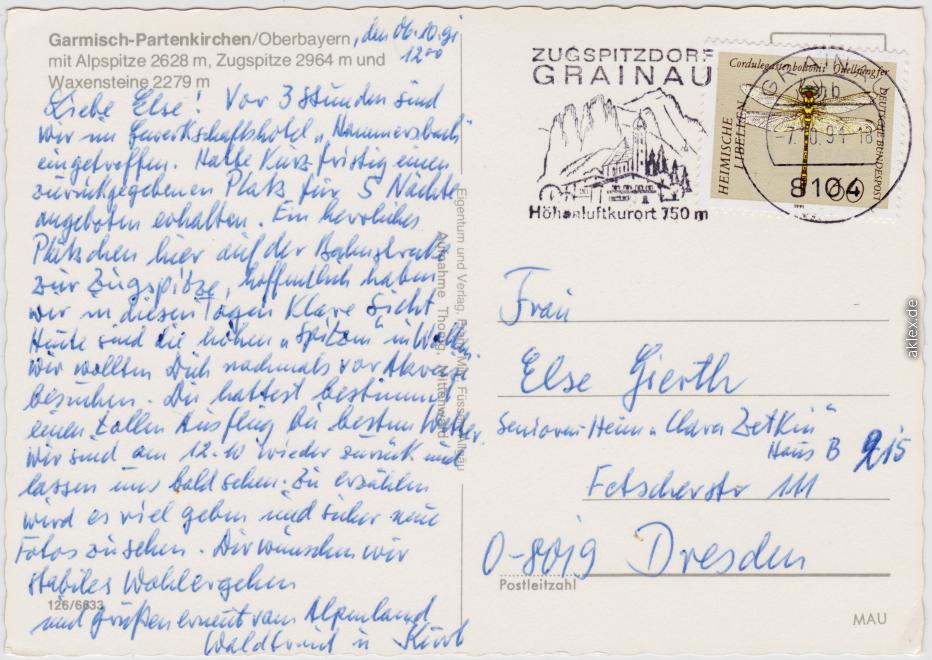 Garmisch-Partenkirchen/Oberbayern
mit Alpspitze 2628 m, Zugspitze 2964 m und
Waxensteine 2279 m
, den 06.10.91
12 00
Liebe Else! Vor 3 Stunden sind
wir im Gewerkschaftshotel „Hammersbach“
eingetroffen. Hatte kurzfristig einen
zurückgegebenen Platz für 5 Nächte
angeboten erhalten. Ein herrliches
Plätzchen hier auf der Bahnstrecke
zur Zugspitze, hoffentlich haben
wir in diesen Tagen klare Sicht
Heute sind die hohen „Spitzen“ in Wolken
Wir wollten Dich nochmals vor Abreise
besuchen. Du hattest bestimmt
einen tollen Ausflug bei bestem Wetter.
Wir sind am 12.10 wieder zurück und
lassen uns bald sehen. Zu erzählen
wird es viel geben und sicher neue
Fotos zu sehen. Dir wünschen wir
stabiles Wohlergehen
und grüßen erneut vom Alpenland
Waldtraut u Kurt
126/6633
Eigentum und Verlag,
Füssen/Allgäu
Aufnahme Thoma, Mittenwald
ZUGSPITZDORF
GRAINAU
Höhenluftkurort 750 m
Cordulegaster bidentatus Quelljungfer
HEIMISCHE
LIBELLEN
DEUTSCHE BUNDESPOST
GRAINAU
hb
-7.10.91-18
8104
Frau
Else Gierth
Senioren-Heim „Clara Zetkin“
Haus B 215
Fetscherstr 111
O-8019 Dresden
Postleitzahl
MAU
aklex.de